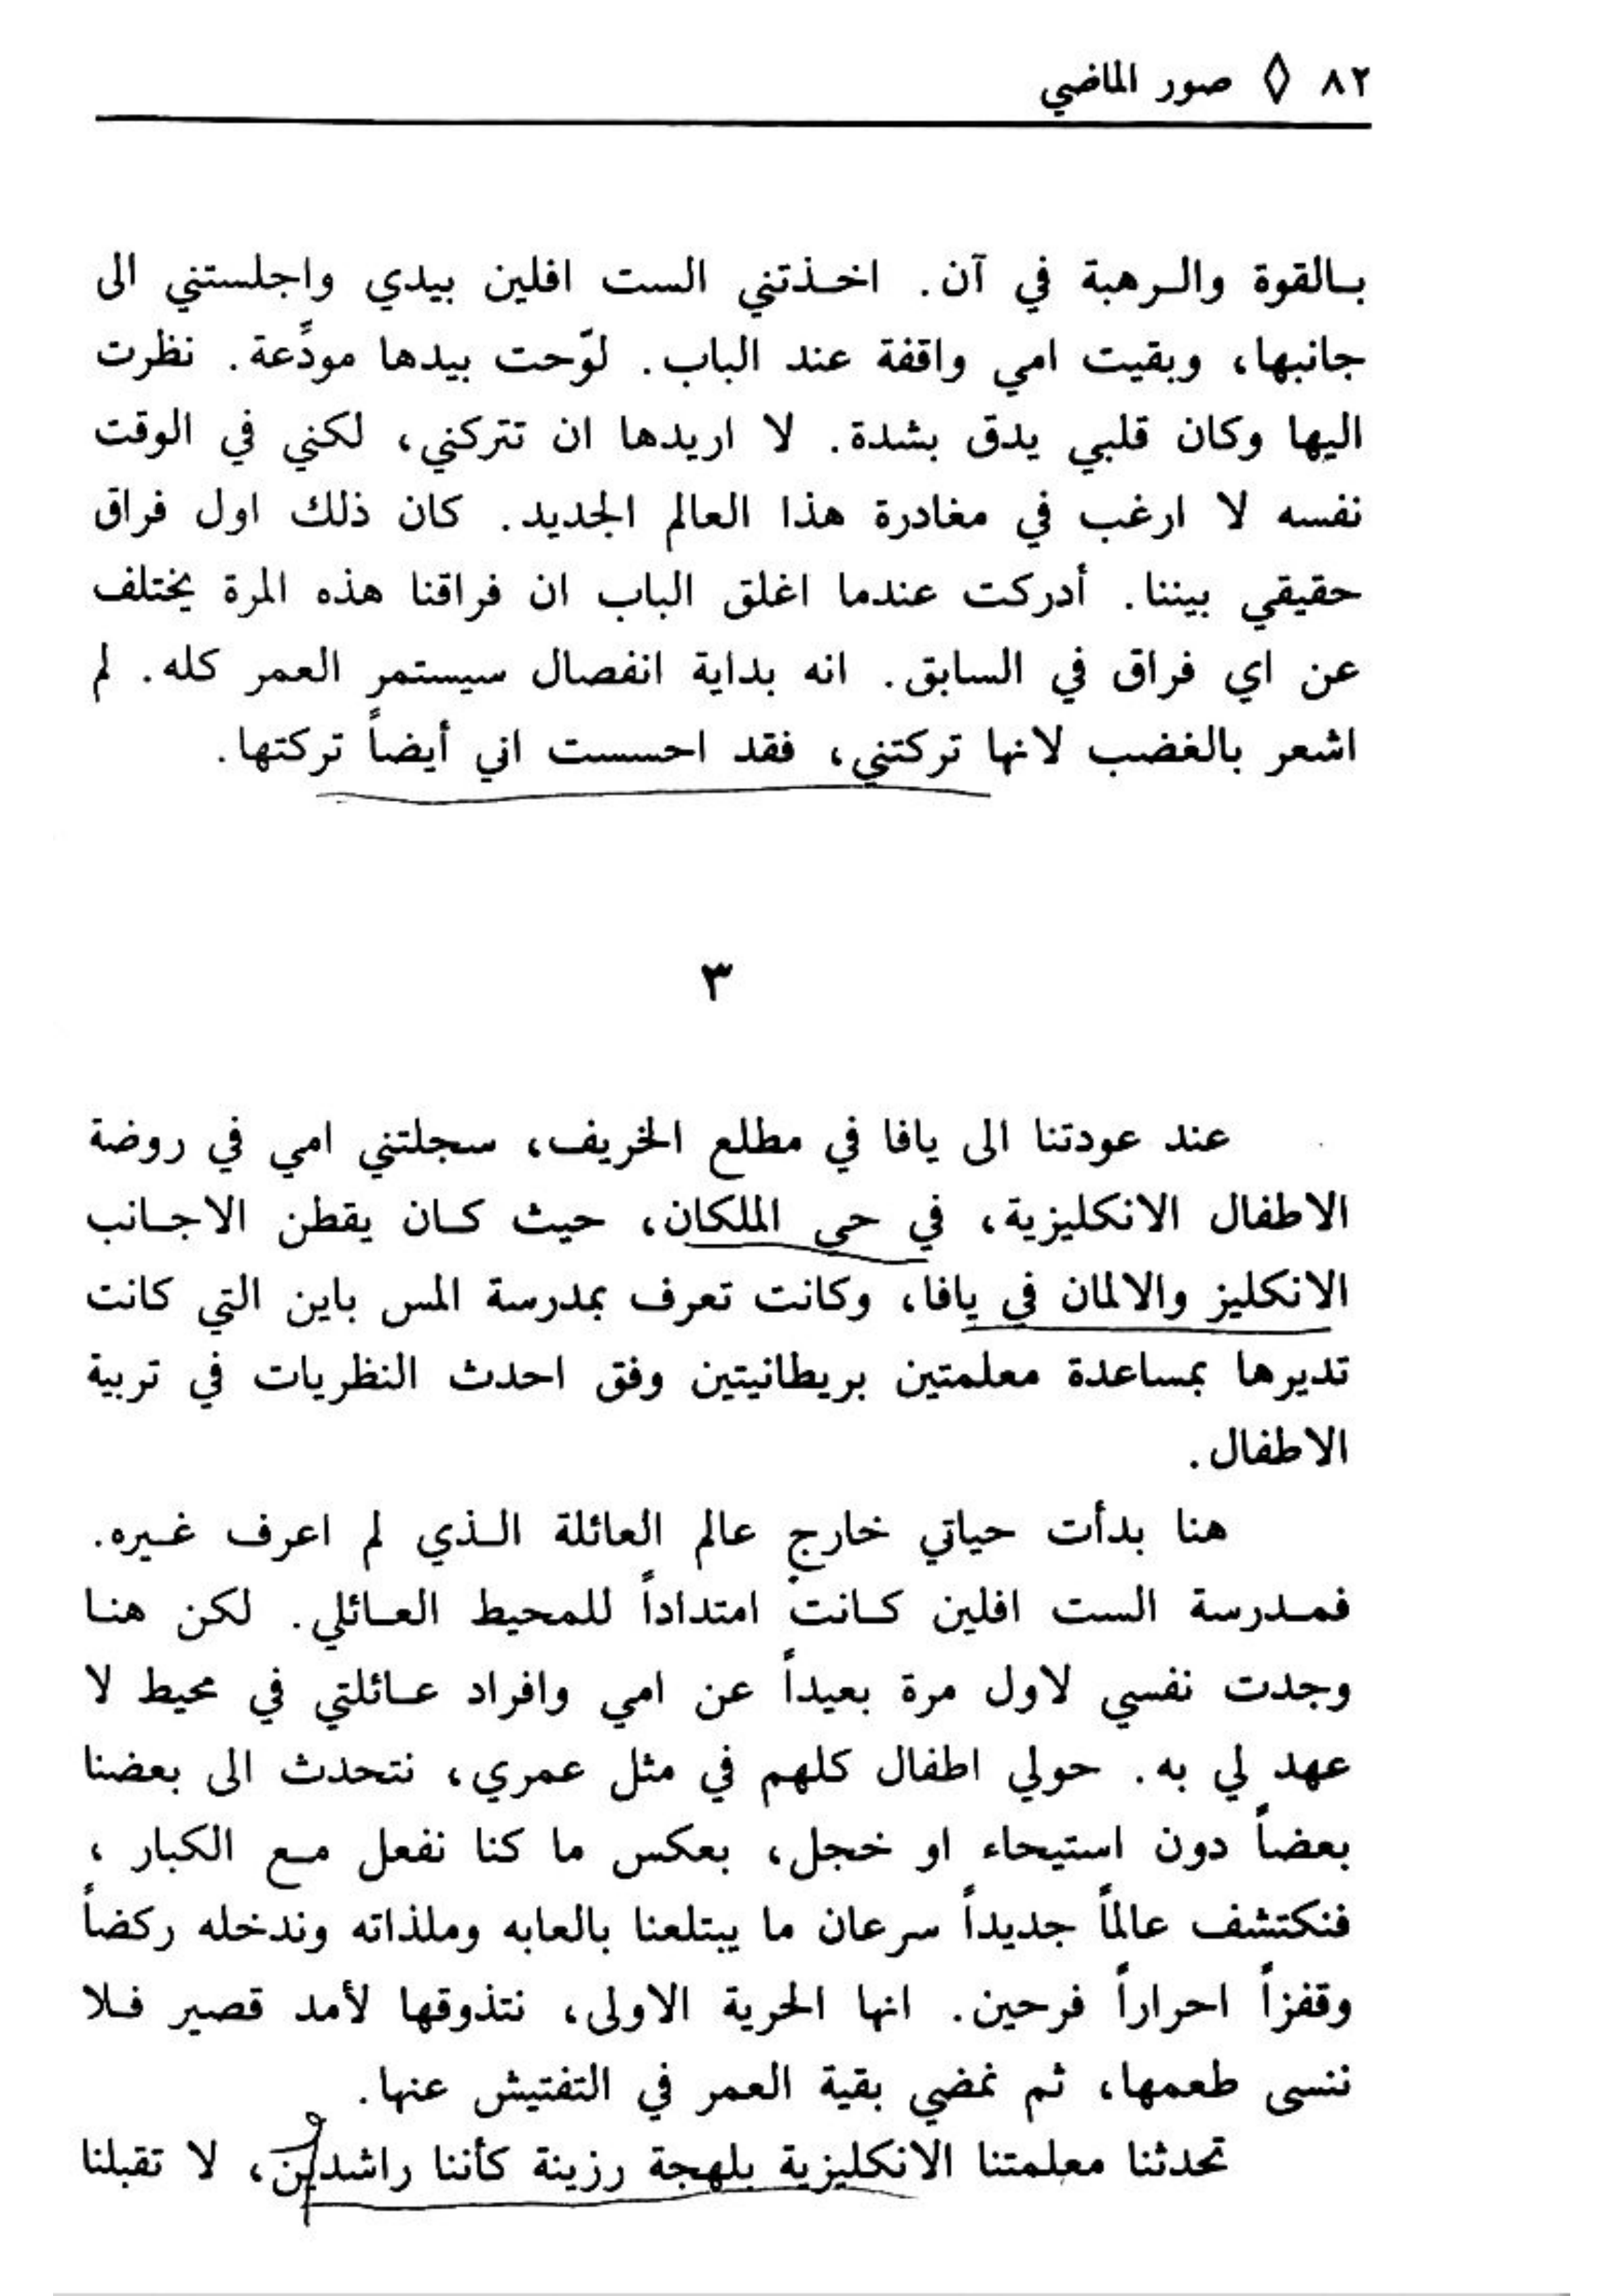 ٨٢ ◊ صور الماضي
بالقوة والرهبة في آن. اخذتني الست افلين بيدي واجلستني الى
جانبها، وبقيت امي واقفة عند الباب. لوّحت بيدها مودِّعة. نظرت
اليها وكان قلبي يدق بشدة. لا اريدها ان تتركني، لكني في الوقت
نفسه لا ارغب في مغادرة هذا العالم الجديد. كان ذلك اول فراق
حقيقي بيننا. أدركت عندما اغلق الباب ان فراقنا هذه المرة يختلف
عن اي فراق في السابق. انه بداية انفصال سيستمر العمر كله. لم
اشعر بالغضب لانها تركتني، فقد احسست اني أيضاً تركتها.
٣
عند عودتنا الى يافا في مطلع الخريف، سجلتني امي في روضة
الاطفال الانكليزية، في حي الملكان، حيث كان يقطن الاجانب
الانكليز والالمان في يافا، وكانت تعرف بمدرسة المس باين التي كانت
تديرها بمساعدة معلمتين بريطانيتين وفق احدث النظريات في تربية
الاطفال.
هنا بدأت حياتي خارج عالم العائلة الذي لم اعرف غيره.
فمدرسة الست افلين كانت امتداداً للمحيط العائلي. لكن هنا
وجدت نفسي لاول مرة بعيداً عن امي وافراد عائلتي في محيط لا
عهد لي به. حولي اطفال كلهم في مثل عمري، نتحدث الى بعضنا
بعضاً دون استيحاء او خجل، بعكس ما كنا نفعل مع الكبار ،
فنكتشف عالماً جديداً سرعان ما يبتلعنا بالعابه وملذاته وندخله ركضاً
وقفزاً احراراً فرحين. انها الحرية الاولى، نتذوقها لأمد قصير فلا
ننسى طعمها، ثم نمضي بقية العمر في التفتيش عنها.
تحدثنا معلمتنا الانكليزية بلهجة رزينة كأننا راشدين، لا تقبلنا